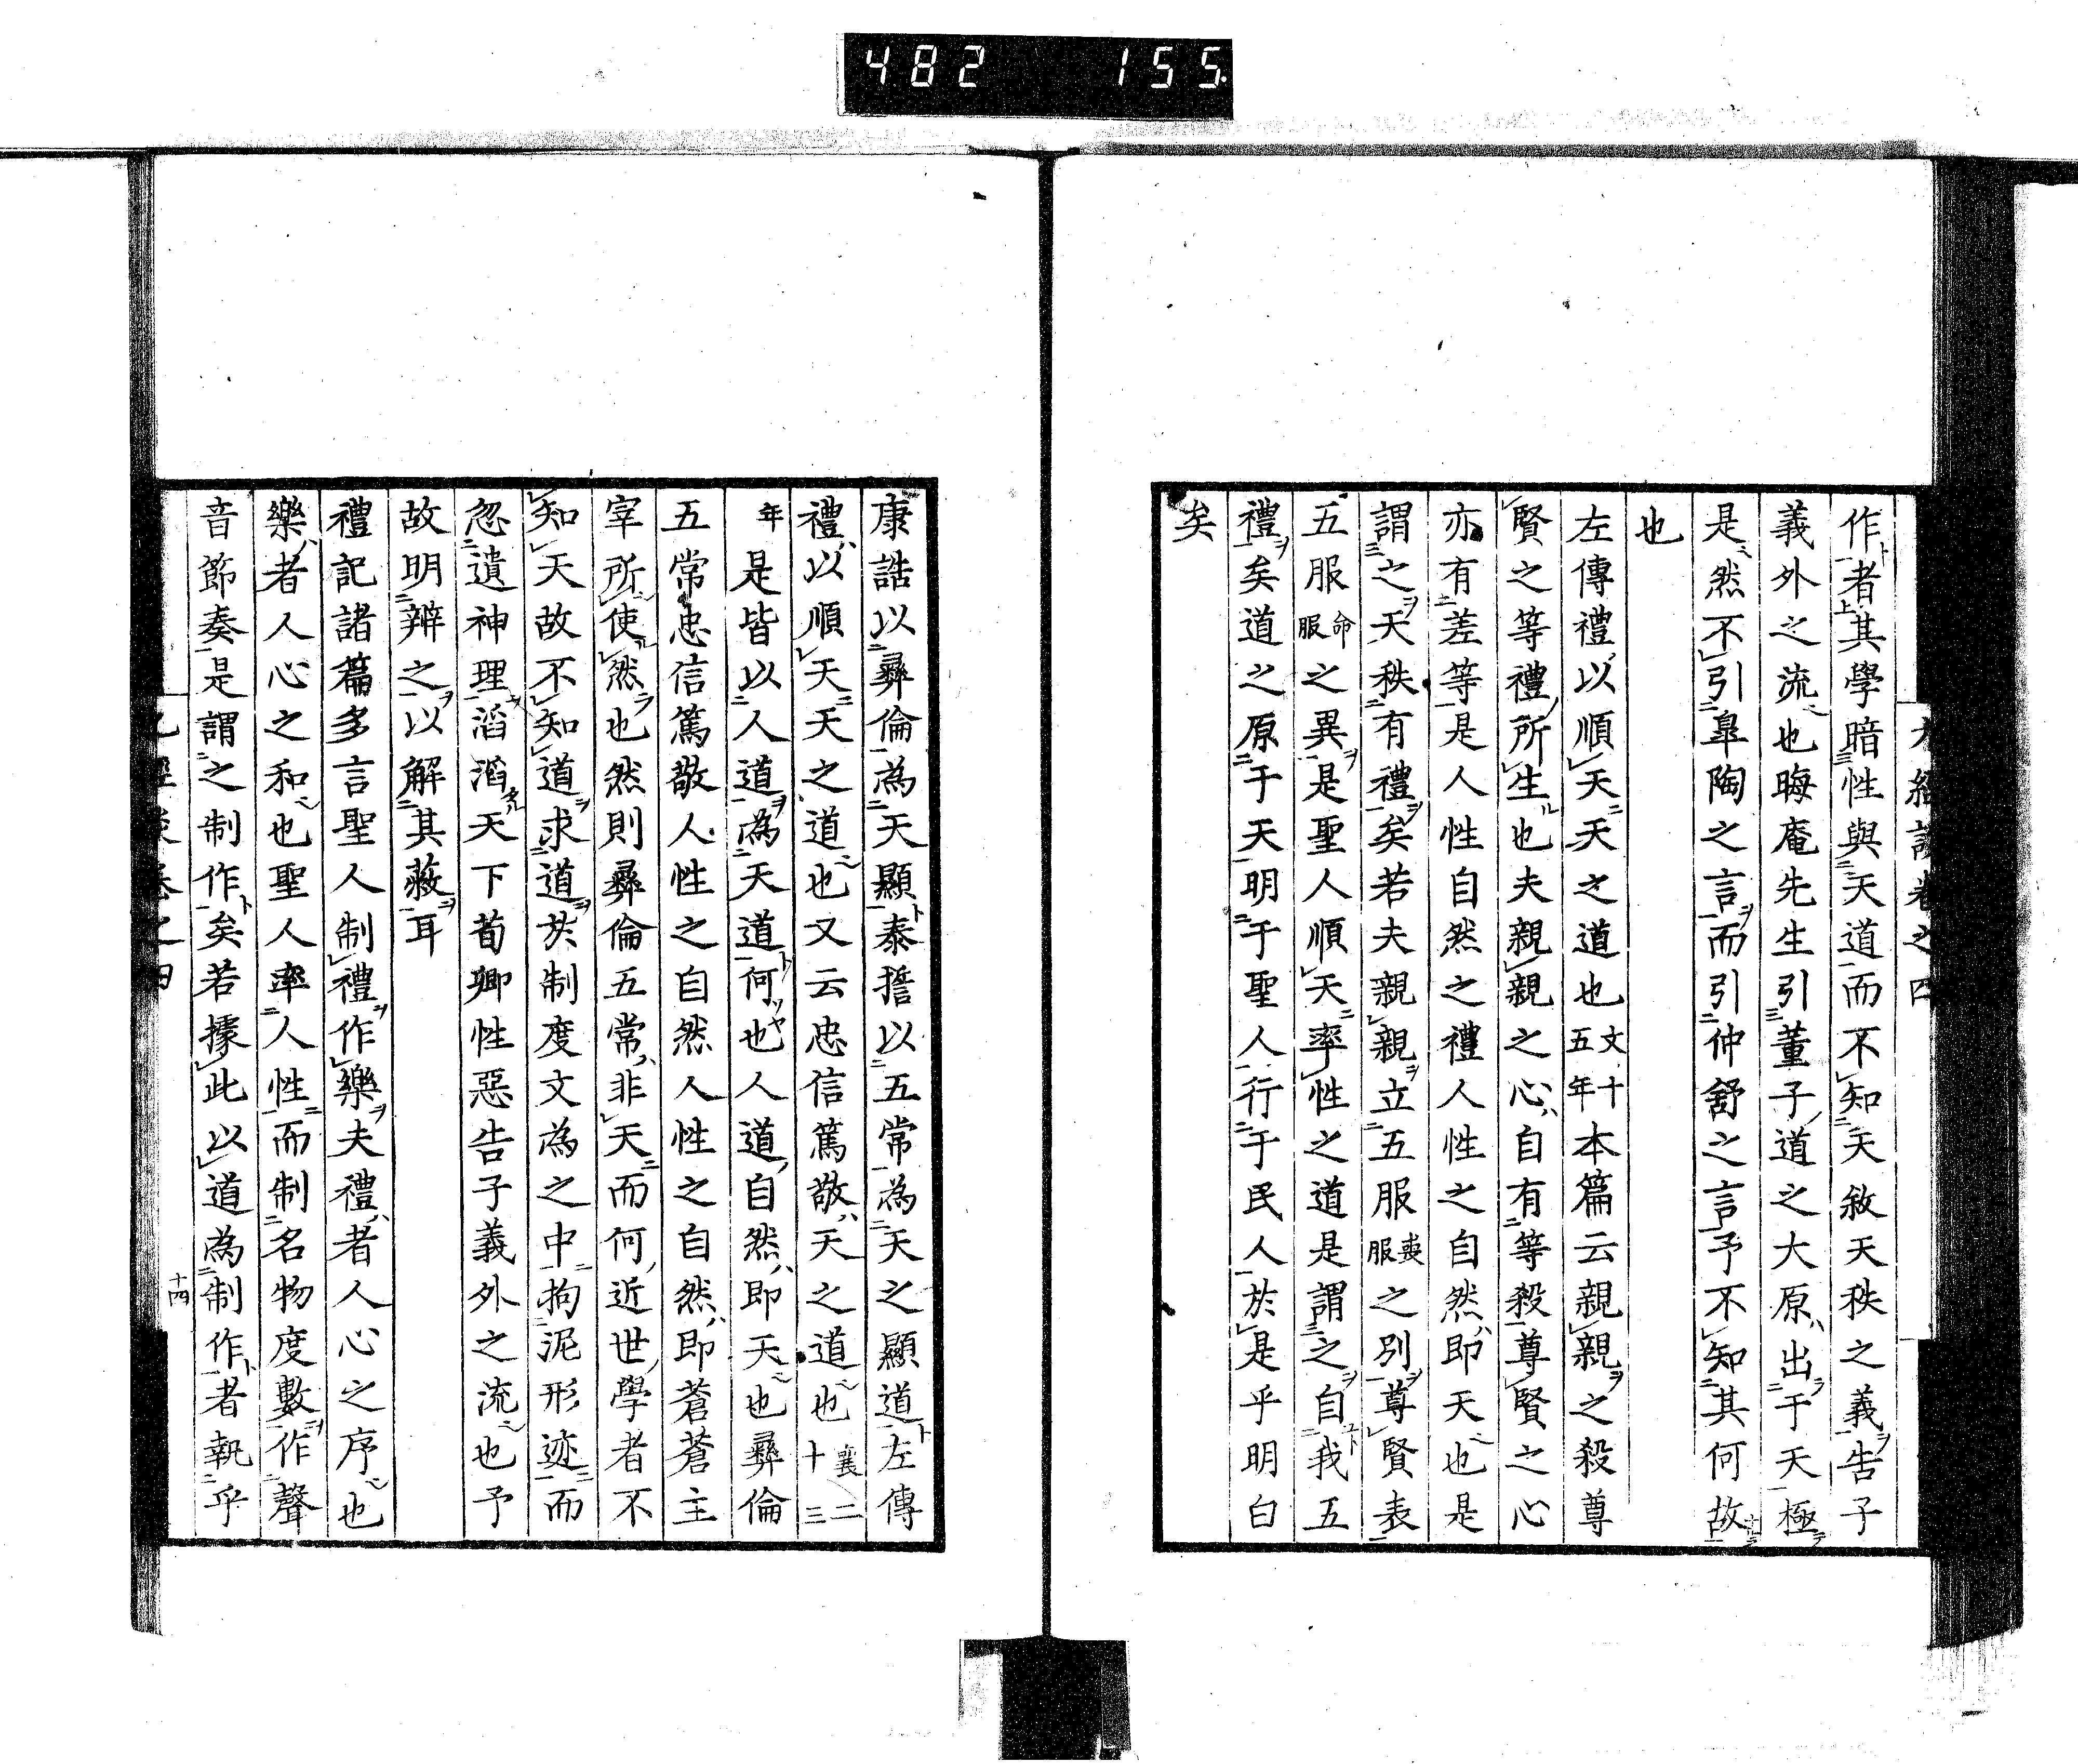 482 155
作者其學暗性與天道而不知天敘天秩之義告子
義外之流也晦庵先生引董子道之大原出于天極
是然不引皐陶之言而引仲舒之言予不知其何故
也
左傳禮以順天天之道也文十五年本篇云親親之殺尊
賢之等禮所生也夫親親之心自有等殺尊賢之心
亦有差等是人性自然之禮人性之自然即天也是
謂之天秩有禮矣若夫親親立五服喪服之別尊賢表
五服命服之異是聖人順天率性之道是謂之自我五
禮矣道之原于天明于聖人行于民人於是乎明白
矣
康誥以彝倫為天顯泰誓以五常為天之顯道左傳
禮以順天天之道也又云忠信篤敬天之道也襄二十三
年是皆以人道為天道何也人道自然即天也彝倫
五常忠信篤敬人性之自然人性之自然即蒼蒼主
宰所使然也然則彝倫五常非天而何近世學者不
知天故不知道求道於制度文為之中拘泥形迹而
忽遺神理滔滔天下荀卿性惡告子義外之流也予
故明辨之以解其蔽耳
禮記諸篇多言聖人制禮作樂夫禮者人心之序也
樂者人心之和也聖人率人性而制名物度數作聲
音節奏是謂之制作矣若據此以道為制作者執乎
十四